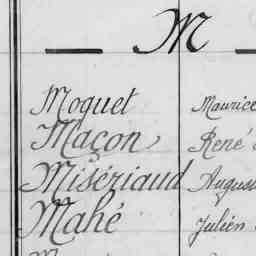 M
Moquet Maurice
Maçon René
Misériaud August
Mahé Julien